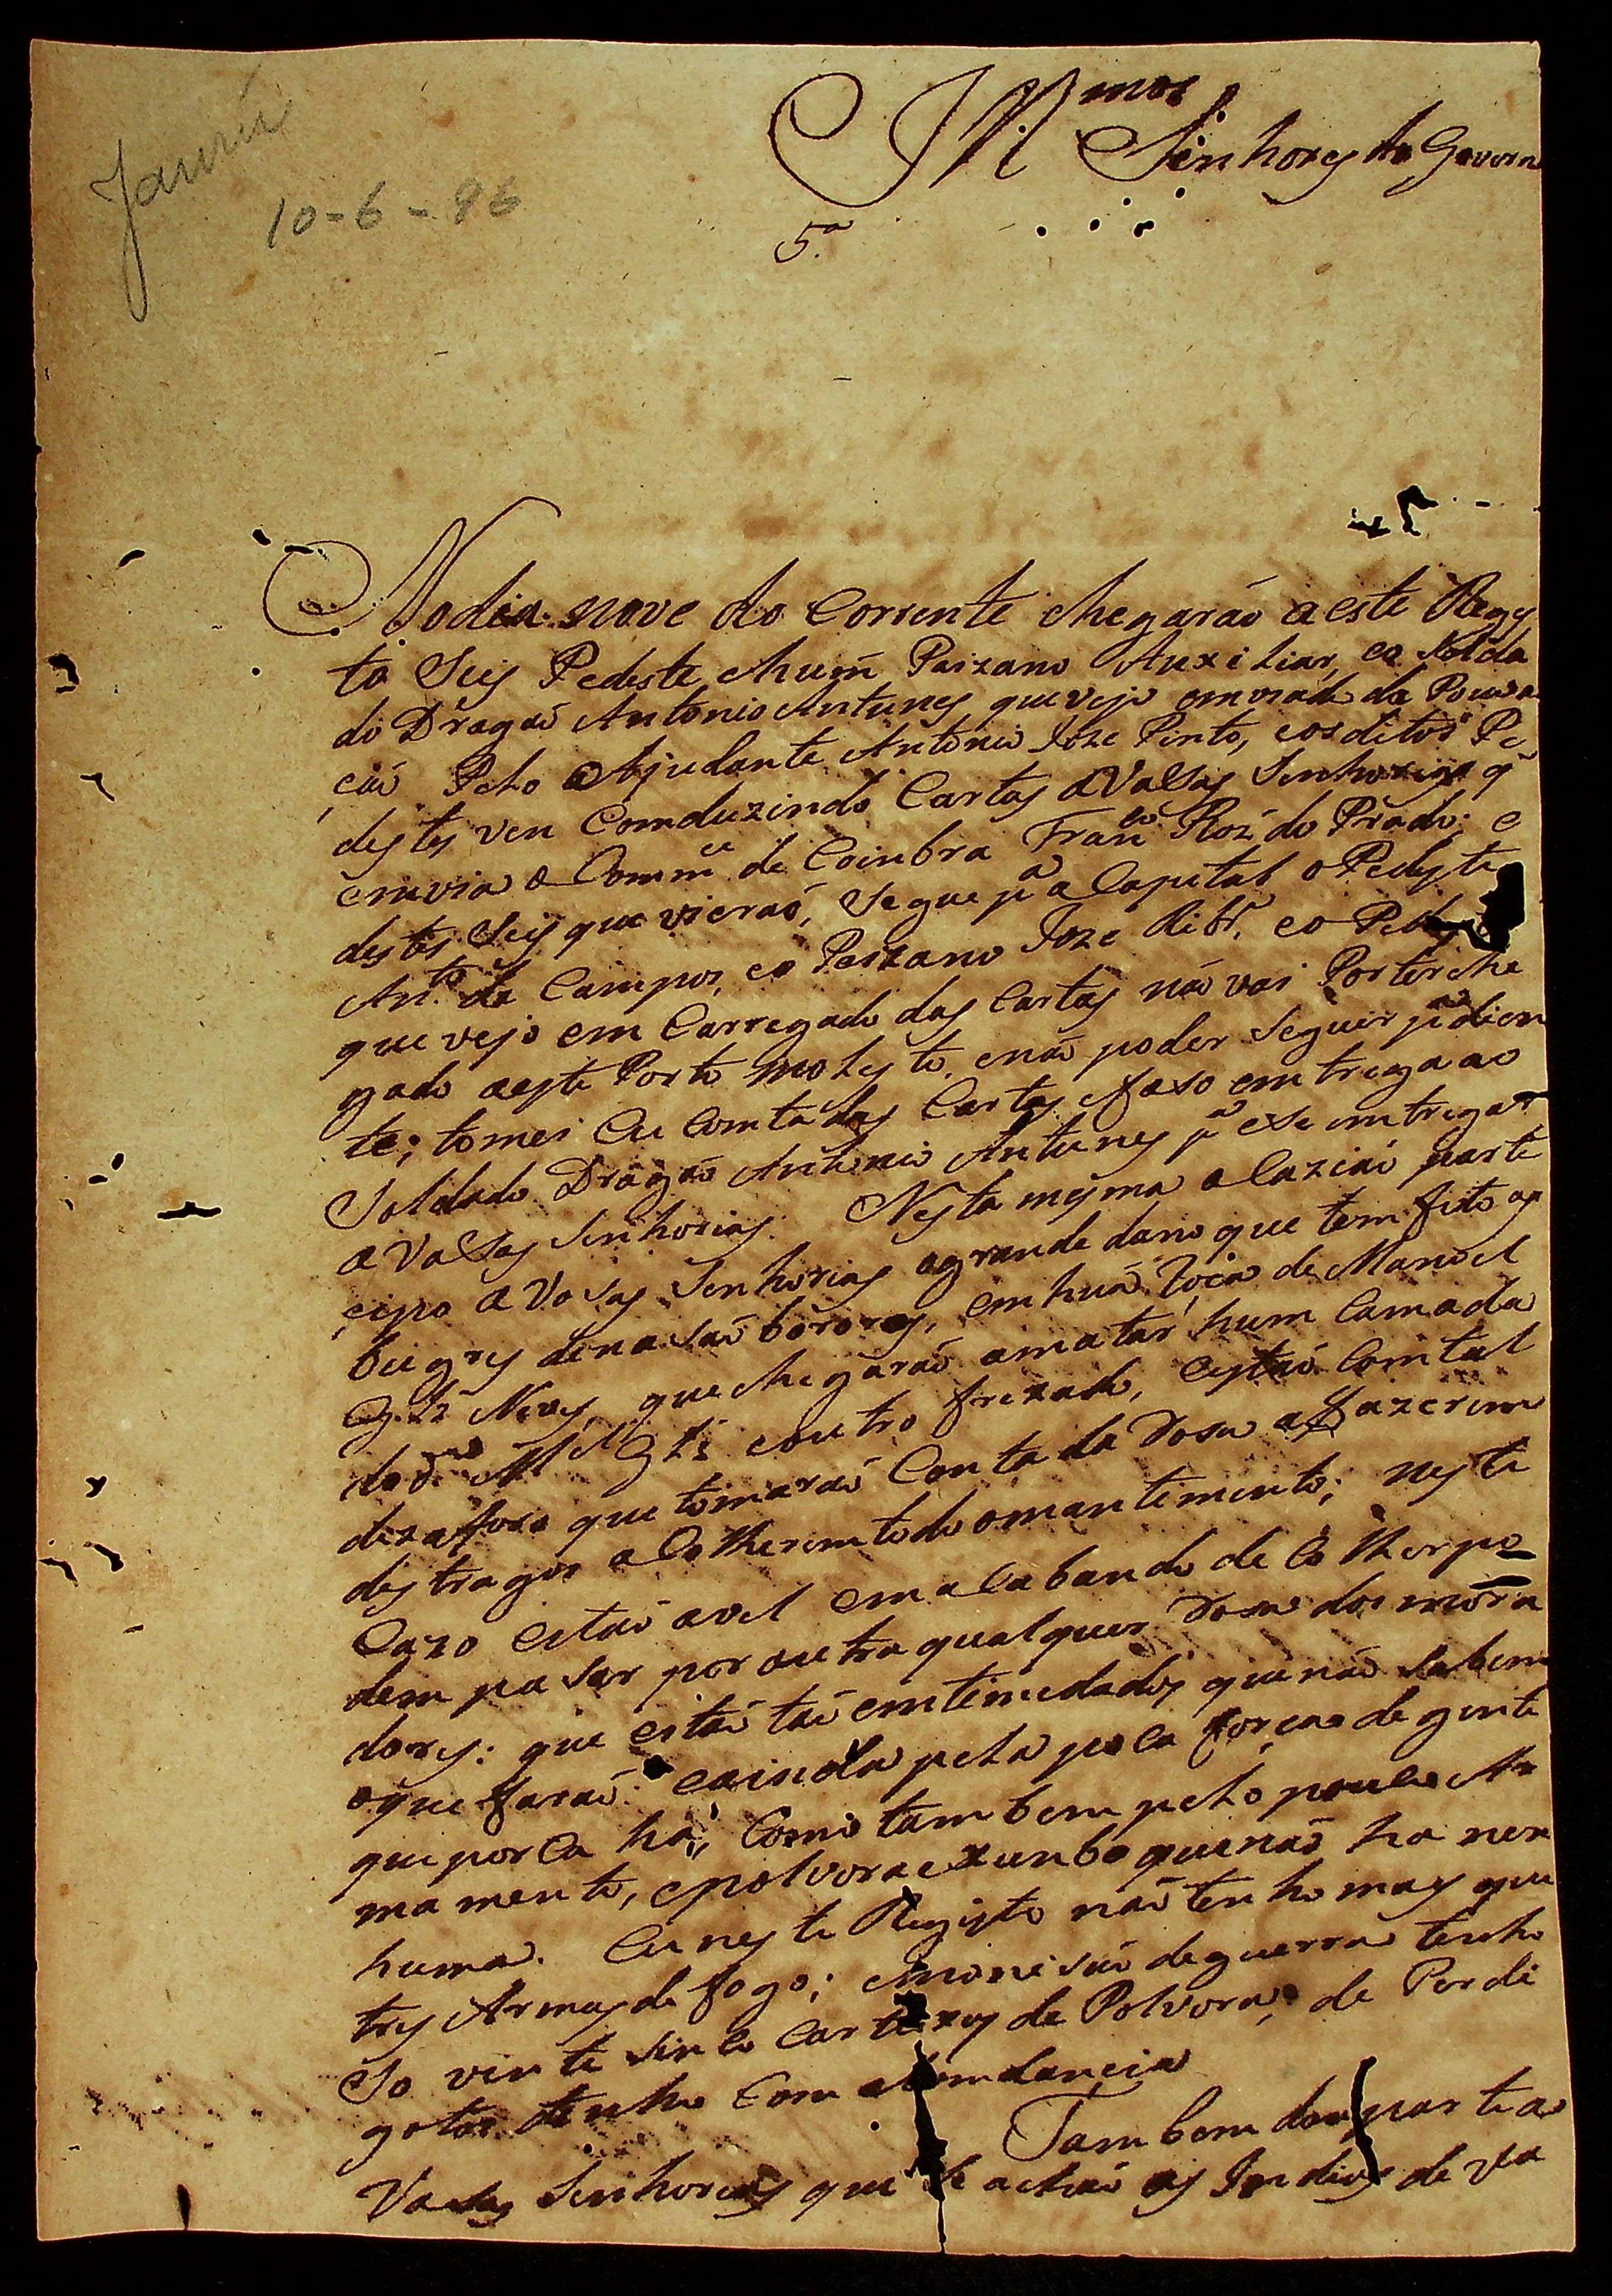 Jaurú
10-6-96
Ill mos Senhores do Govern
5.ª
No dia nove do Corrente chegaraõ a este Regis
to Seis Pedeste e hum Paizano Auxiliar, e o Solda
do Dragaõ Antonio Antunes que vejo emviado da Pouoa
çaõ Pelo Ajudante Antonio Joze Pinto, e os ditos Pe
destes ven Comduzindo Cartas a Vasas Senhorias q̃
emvia o Comm.e de Coinbra Fran.co Roz' do Prado; e
destes Seis que vieraõ, Segue p.a a Capital o Pedeste
An.to de Campos, e o Paizano Joze Ribr.o e o Pedeste
que vejo em Carregado das Cartas naõ vai Por ter che
gado a este Porto molesto, e naõ poder Seguir p.a dien
te; tomei Eu Comta das Cartas e faso emtrega ao
Soldado Dragaõ Antonio Antunes p.a ese emtregar
a Vasas Senhorias. Nesta mesma o Caziaõ parte
cipo a Vosas Senhorias o grande dano que tem feito os
bugres de nasaõ bororos, em huã roça de Manoel
que chegaraõ a matar hum Camada
e outro frexado, e estaõ Com tal
dezaforo que tomaraõ Conta da Rosa a fazerem
destragos a Colherem todo o mantimento; neste
Cazo estaõ avel em a Cabando de Colher po
dem pasar por outra qualquer Rosa dos mora
dores: que estaõ taõ emtimidados que naõ sabem
o que faraõ: e ainda pela poca forças de gente
que por Ca ha, Como tambem pelo pouco Ar
mamento, e polvora e xunbo que naõ ha nen
huma. Eu neste Registo naõ tenho mays que
tres Armas de fogo; e moniсaõ de guerra tenho
So vinte sinco Cartuxos de Polvora, de Perdi
gotos tenho Com abomdancia
Tambem dou parte a
Vasas Senhorias que Se achaõ os Indios de Va